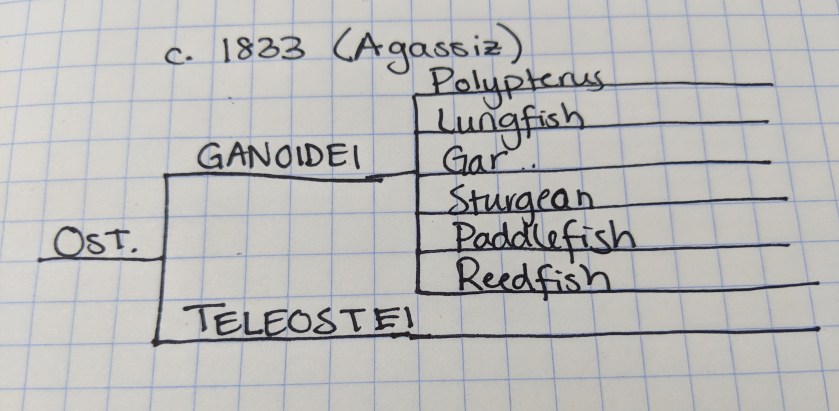 c. 1833 (Agassiz)
Polypterus
Lungfish
GANOIDEI
Gar..
Sturgean
OST.
Paddlefish
Reedfish
TELEOSTEI